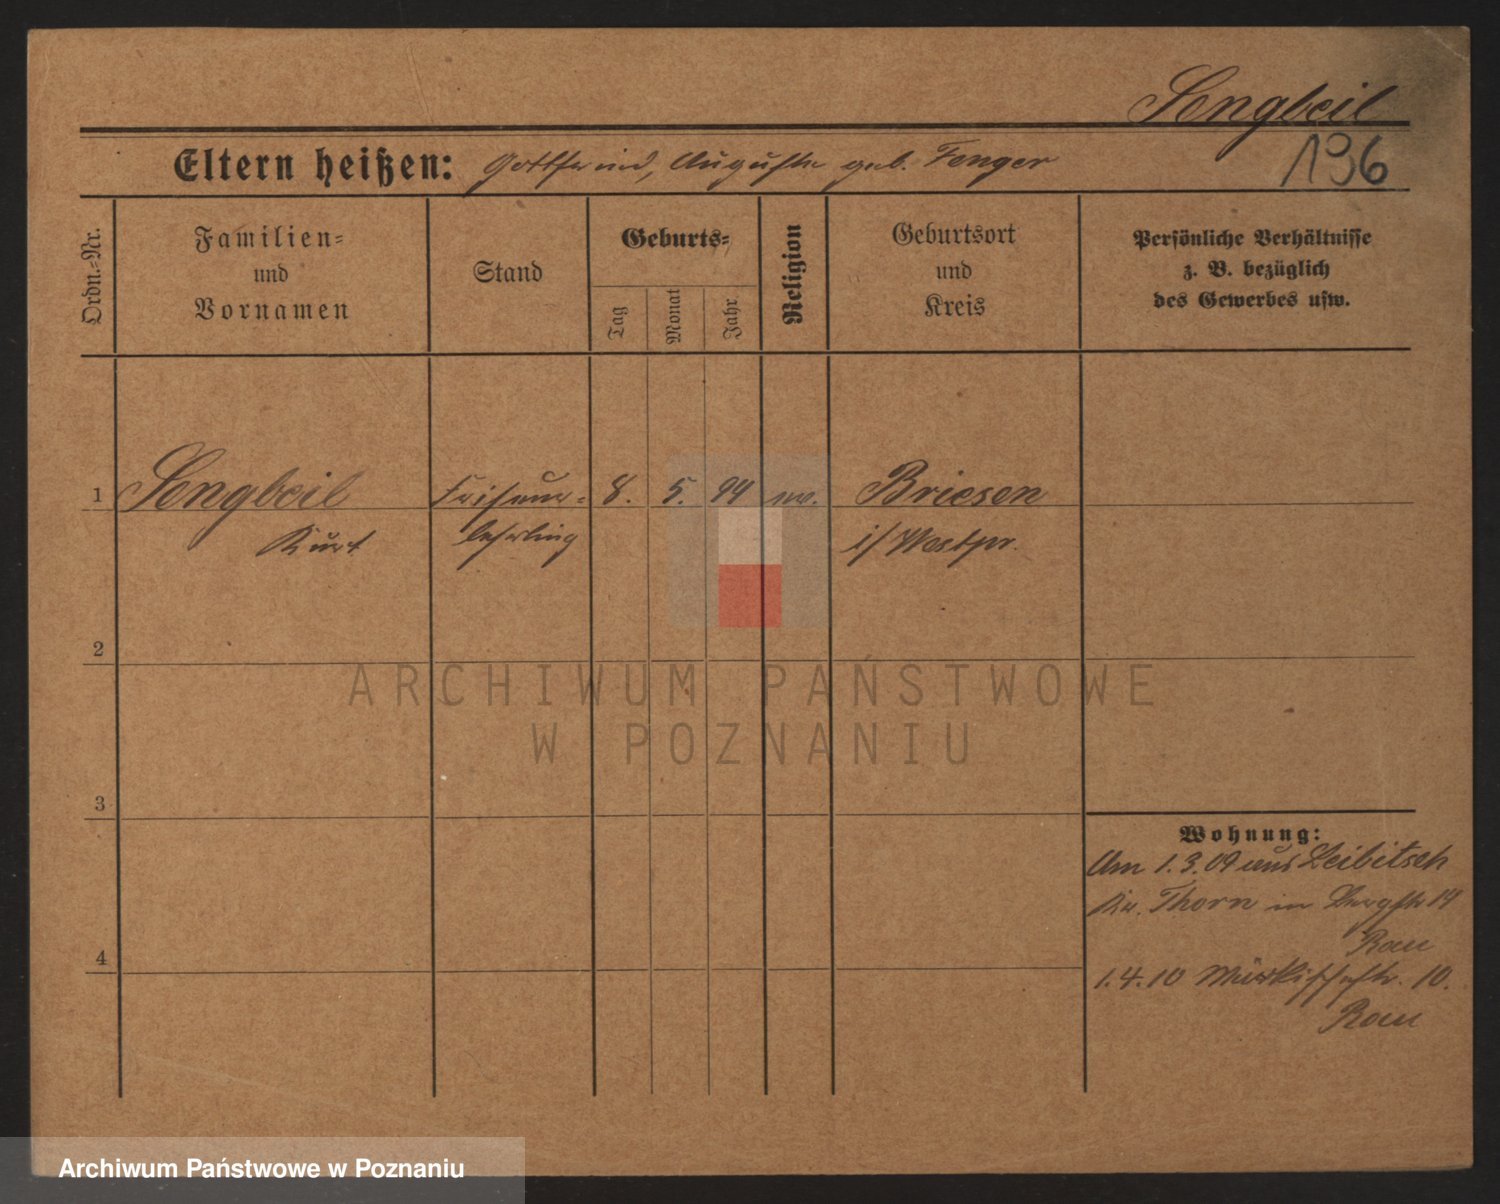 Sengbeil
196
Eltern heißen: Gottfried, Auguste geb. Fenger
Ordn.-Nr.
Familien- und Vornamen
Stand
Geburts-
Tag
Monat
Jahr
Religion
Geburtsort und Kreis
Persönliche Verhältnisse
z. B. bezüglich
des Gewerbes usw.
1 Sengbeil Friseur- 8. 5. 94 ev. Briesen
Kurt lehrling i/Westpr.
2
3
4
Wohnung:
Am 1.3.09 aus Leibitsch
Kr. Thorn in Bergstr 14
Rau
1.4.10 Märkischestr. 10.
Rau
ARCHIWUM PAŃSTWOWE
W POZNANIU
Archiwum Państwowe w Poznaniu